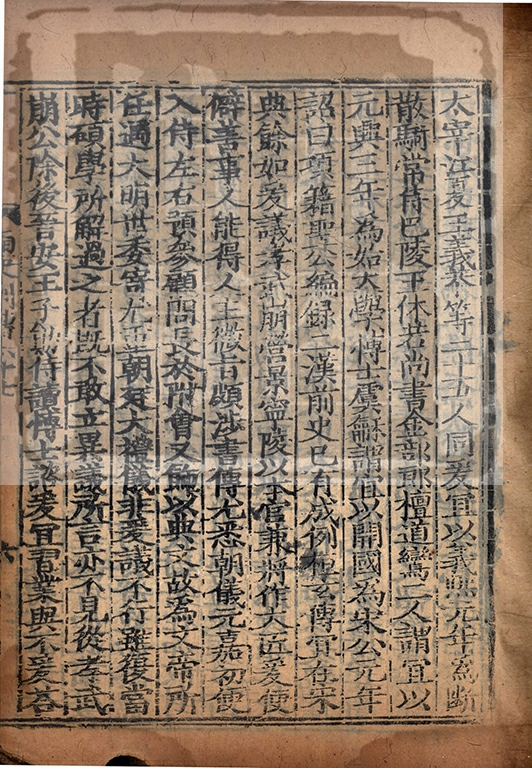 太宰江夏王義恭等二十五人同爰宜以義熙元年為斷
散騎常侍巴陵王休若尚書金部郎檀道鸞二人謂宜以
元興三年為始太學博士虞龢謂宜以開國為宋公元年
詔曰項籍聖公編録二漢前史已有成例桓玄傳宜在宋
典餘如爰議孝武崩營景寧陵以本官兼將作大匠爰便
僻善事人能得人主微旨頗涉書傳尤悉朝儀元嘉初便
入侍左右預參顧問長於附會又飾以典文故為文帝所
任遇大明世委寄尤重朝廷大禮儀非爰議不行雖復當
時碩學所解過之者既不敢立異議所言亦不見從孝武
崩公除後晉安王子勛侍讀博士諮爰宜習業與不爰荅
南史列傳六十七